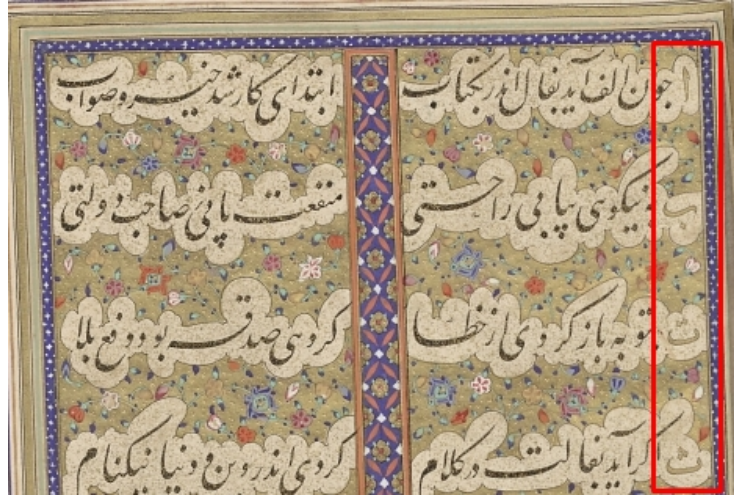 ا چون الف آید بفال اندر کتاب ابتدای کار شد خیر و صواب
ب نیکوئی بیابی راحتی منفعت یابی ز صاحب دولتی
ت توبه باز کردی از خطا گر دهی صدقه بود دفع بلا
ث گر آید بفالت در کلام گردی اندر دین و دنیا نیکنام